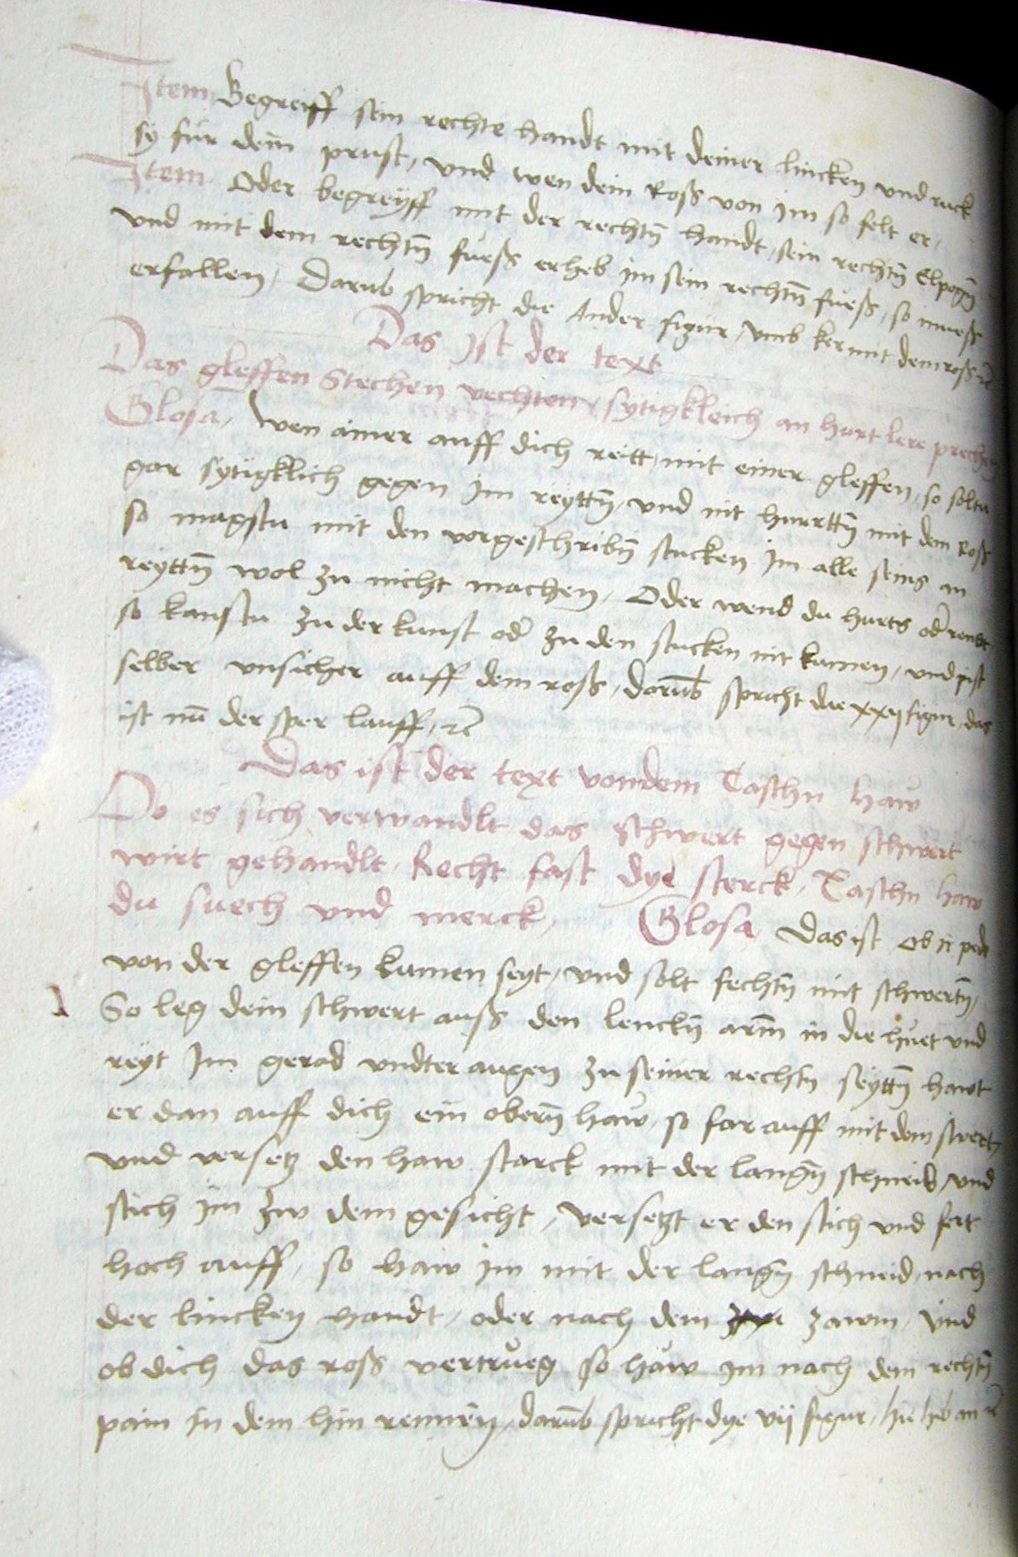 Item Begreiff sein rechte handt mit deiner lincken und ruck
sy für dein prust, und wen dein Roß von im so felt er,
Item Oder begreyff mit der rechtn̄ handt, sein rechtn̄ Elpogn̄
und mit dem rechtn̄ fueß erheb im sein rechtn̄ fueß, so mueß
erfallen, Darub spricht die Ander figur, umb ker mit dem roß
Das Ist der text
Das gleffen Stechen vechten, sytigkleich an hurt lere prechen
Glosa, Wen ainer auff dich reitt, mit einer gleffen, so soltu
gar sytigklich gegen Im reyttn̄, und nit hurrttn̄ mit dem Roß
so magstu mit den vorgeschribn̄ stucken Im alle seins in
reyttn̄ wol zu nicht machen, Oder wend du hurts oder
so kanstu zu der kunst oder zu den stucken nit kumen, und pist
selber unsicher auff dem roß, darūb spricht die xxij figur, das
ist nū der sper lauff,
Das ist der text von dem Taschn haw
Do es sich verwandlt das schwert gegen schwert
wirt gehandlt, Recht fast dye sterck, Taschn haw
du suech und merck, Glosa Das ist Ob ir ped
von der gleffen kumen seyt, und solt fechtn̄ mit schwertn̄,
So leg dein schwert auff den lenckn̄ arm in die huet und
reyt Im gerad undter augen zu seiner rechtn seyttn̄ hawt
er dan auff dich ein obern̄ haw, so far auff mit dem swertz
und versetz den haw starck mit der langn̄ schneid, und
stich im zw dem gesicht, versetzt er den stich und fert
hoch auff, so haw im mit der langn̄ schneid, nach
der lincken handt, oder nach dem zawm, und
ob dich das roß vertrueg so haw im nach dem rechtn̄
pain In dem hin rennen, darūb spricht dye vij figur, hie heb an